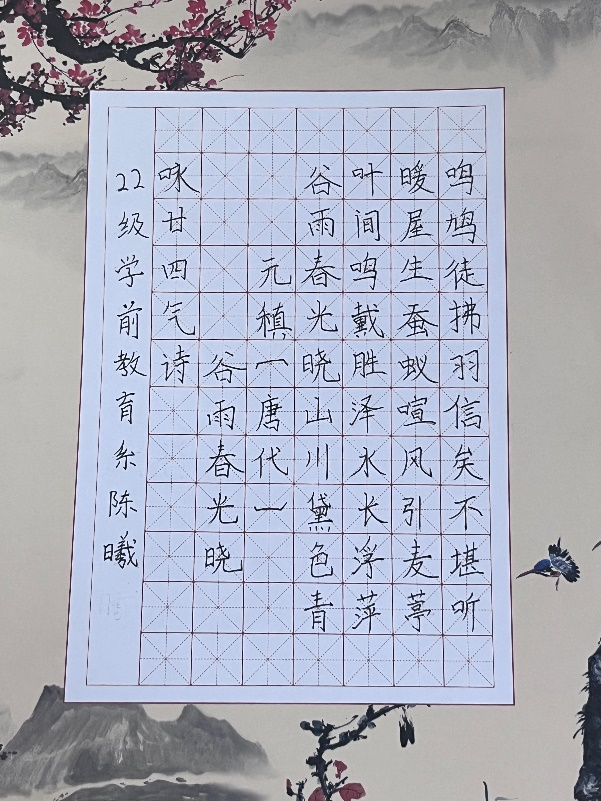 22级学前教育系陈曦
咏甘四气诗
谷雨春光晓
元稹一唐代一
谷雨春光晓山川黛色青
叶间鸣戴胜泽水长浮萍
暖屋生蚕蚁喧风引麦葶
鸣鸠徒拂羽信矣不堪听